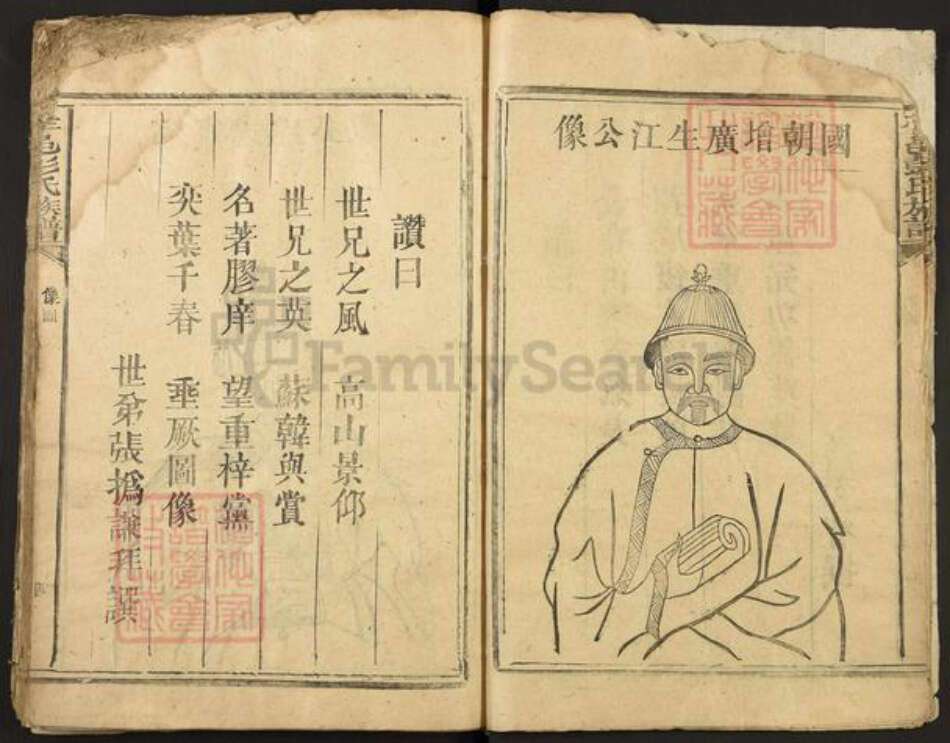 國朝增廣生江公像
讚曰
世兄之風 高山景仰
世兄之英 蘇韓與賞
名著膠庠 望重梓黨
奕葉千春 垂厥圖像
世弟張撝謙拜譔
邑彭氏族譜
像圖
FamilySearch